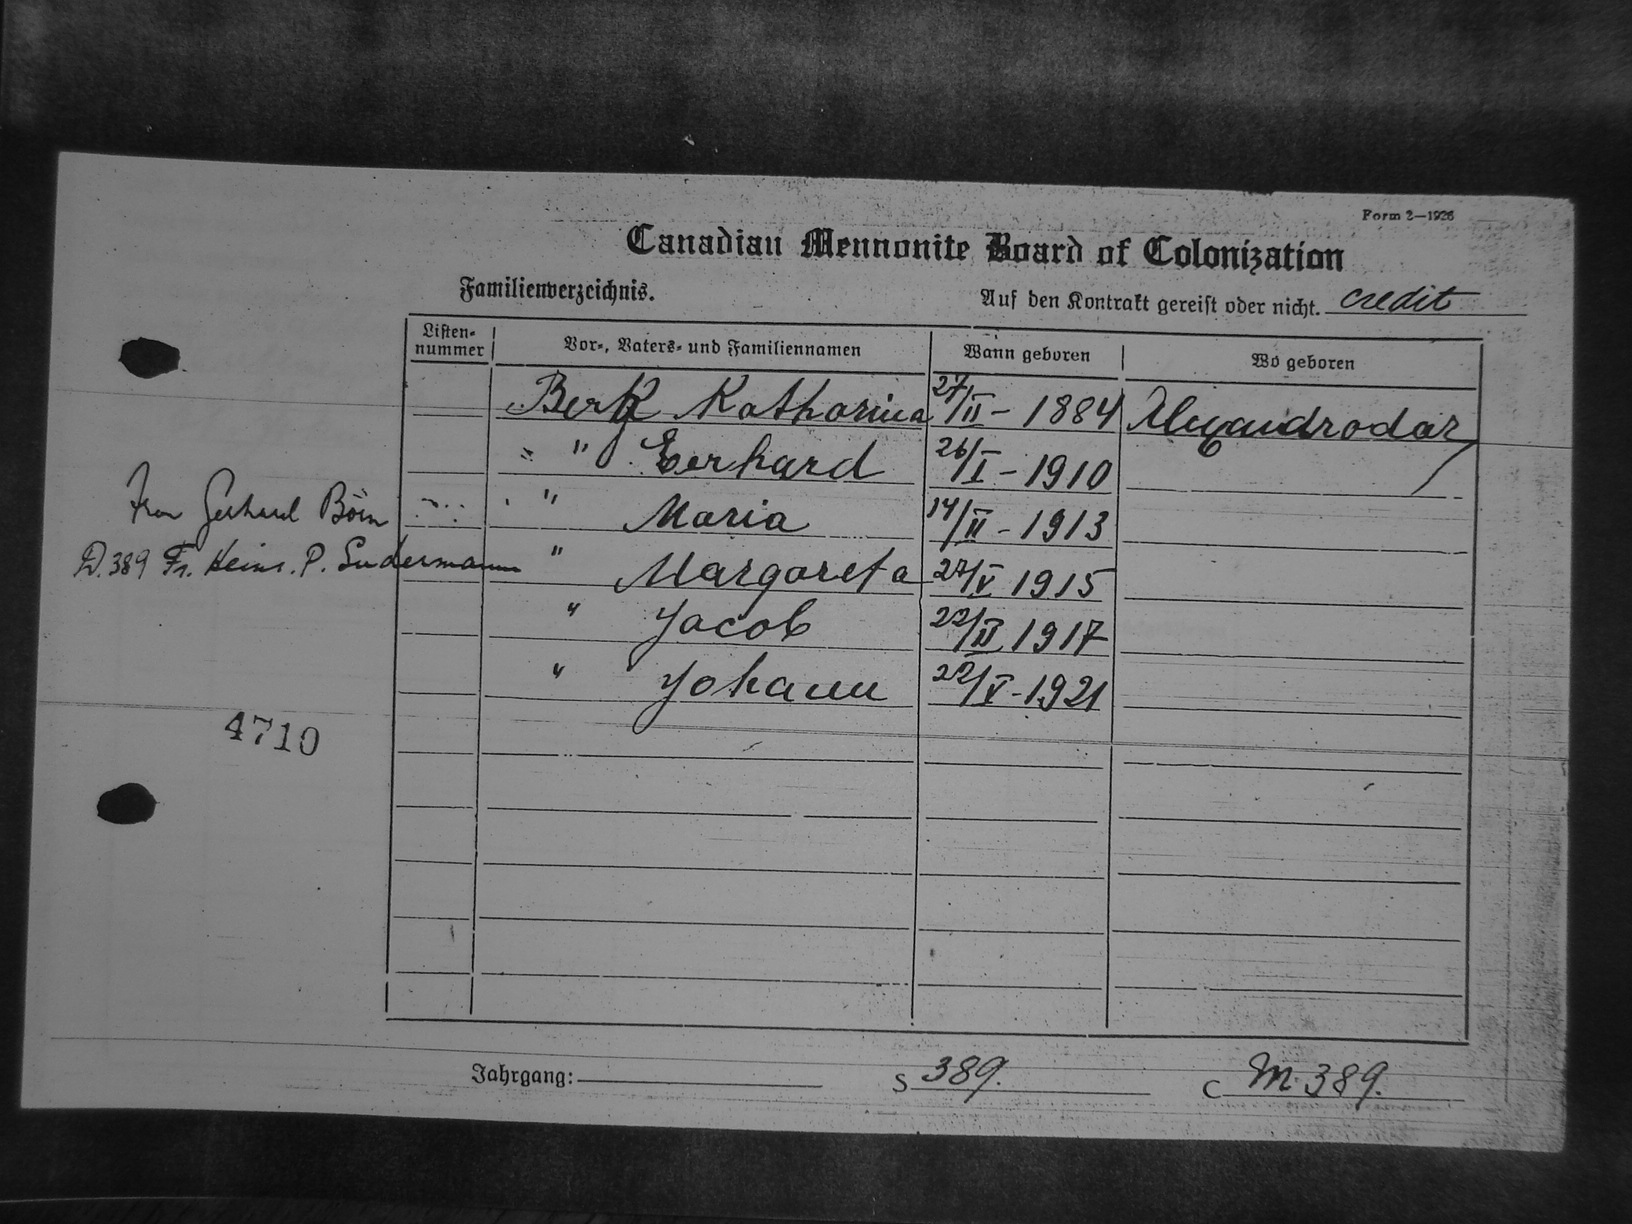 Form 2—1926
Canadian Mennonite Board of Colonization
Familienverzeichnis.
Auf den Kontrakt gereist oder nicht. credit
Listen-
nummer
Vor-, Vaters- und Familiennamen
Wann geboren
Wo geboren
Berk Katharina 27/II - 1884 Alexandrodar
" " Gerhard 26/I - 1910
Frau Gerhard Börn " Maria 14/II - 1913
D. 389 Fr. Heinr. P. Sudermann " Margareta 27/V 1915
" Jacob 22/II 1917
" Johann 22/V - 1921
4710
Jahrgang:
S 389.
C M. 389.